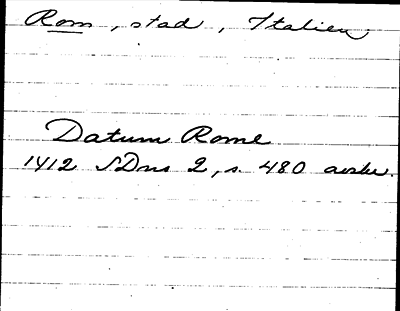 Rom, stad, Italien
Datum Rome
1412 SDns 2, s. 480 avskr.